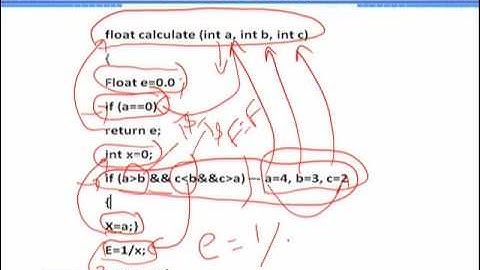 float calculate (int a, int b, int c)
{
Float e=0.0
if (a==0)
return e;
int x=0;
if (a>b && c<b&&c>a) --- a=4, b=3, c=2
{
X=a;}
E=1/x;
e = 1/.